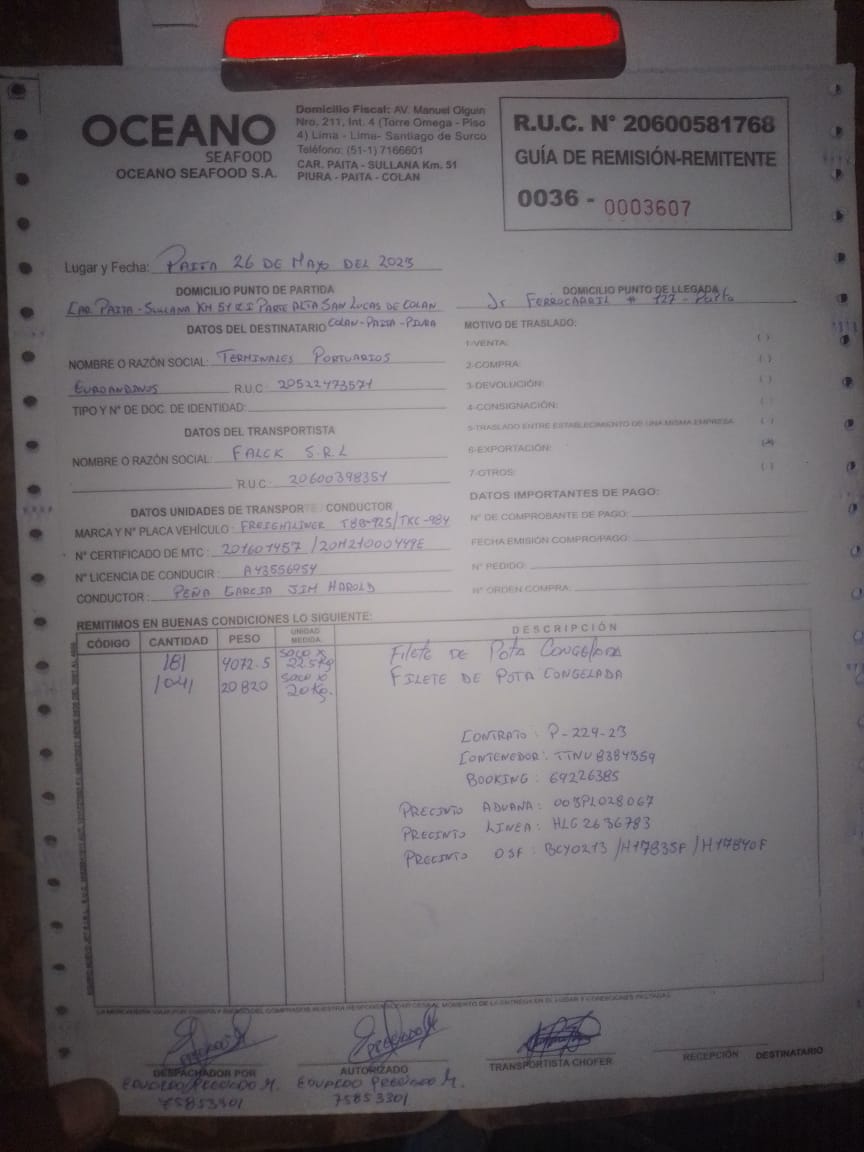 OCEANO
SEAFOOD
OCEANO SEAFOOD S.A.
Domicilio Fiscal: AV. Manuel Olguin
Nro. 211, Int. 4 (Torre Omega - Piso
4) Lima - Lima- Santiago de Surco
Teléfono: (51-1) 7166601
CAR. PAITA - SULLANA Km. 51
PIURA - PAITA - COLAN
R.U.C. N° 20600581768
GUÍA DE REMISIÓN-REMITENTE
0036 - 0003607
Lugar y Fecha: PAITA 26 DE MAYO DEL 2023
DOMICILIO PUNTO DE PARTIDA
CAR. PAITA - SULLANA KM 51 PARTE ALTA SAN LUCAS DE COLAN
COLAN - PAITA - PIURA
DOMICILIO PUNTO DE LLEGADA
Jr FERROCARRIL # 127 - Paita
DATOS DEL DESTINATARIO
NOMBRE O RAZÓN SOCIAL: TERMINALES PORTUARIOS
EUROANDINOS R.U.C. 20522473571
TIPO Y N° DE DOC. DE IDENTIDAD:
DATOS DEL TRANSPORTISTA
NOMBRE O RAZÓN SOCIAL: FALCK S.R.L
R.U.C: 20600398351
DATOS UNIDADES DE TRANSPORTE CONDUCTOR
MARCA Y N° PLACA VEHÍCULO: FREIGHTLINER T8B-925/TKC-984
N° CERTIFICADO DE MTC: 201601457 / 20M21000449E
N° LICENCIA DE CONDUCIR: A43556954
CONDUCTOR: PEÑA GARCIA JIM HAROLD
MOTIVO DE TRASLADO:
1-VENTA: ( )
2-COMPRA: ( )
3-DEVOLUCIÓN: ( )
4-CONSIGNACIÓN: ( )
5-TRASLADO ENTRE ESTABLECIMIENTO DE UNA MISMA EMPRESA ( )
6-EXPORTACIÓN: (x)
7-OTROS: ( )
DATOS IMPORTANTES DE PAGO:
N° DE COMPROBANTE DE PAGO:
FECHA EMISIÓN COMPRO/PAGO:
N° PEDIDO:
N° ORDEN COMPRA:
REMITIMOS EN BUENAS CONDICIONES LO SIGUIENTE:
CÓDIGO CANTIDAD PESO UNIDAD MEDIDA DESCRIPCIÓN
181 4072.5 SACO x 22.5Kg FILETE DE POTA CONGELADA
1041 20820 SACO x 20Kg. FILETE DE POTA CONGELADA
CONTRATO: P-229-23
CONTENEDOR: TTNU8384359
BOOKING: 69226385
PRECINTO ADUANA: 003PL028067
PRECINTO LINEA: HLG2636783
PRECINTO OSF: BCY0213 / H17835F / H17840F
DESPACHADOR POR
EDUARDO PRECIADO M.
75853301
AUTORIZADO
EDUARDO PRECIADO M.
75853301
TRANSPORTISTA CHOFER
RECEPCIÓN DESTINATARIO